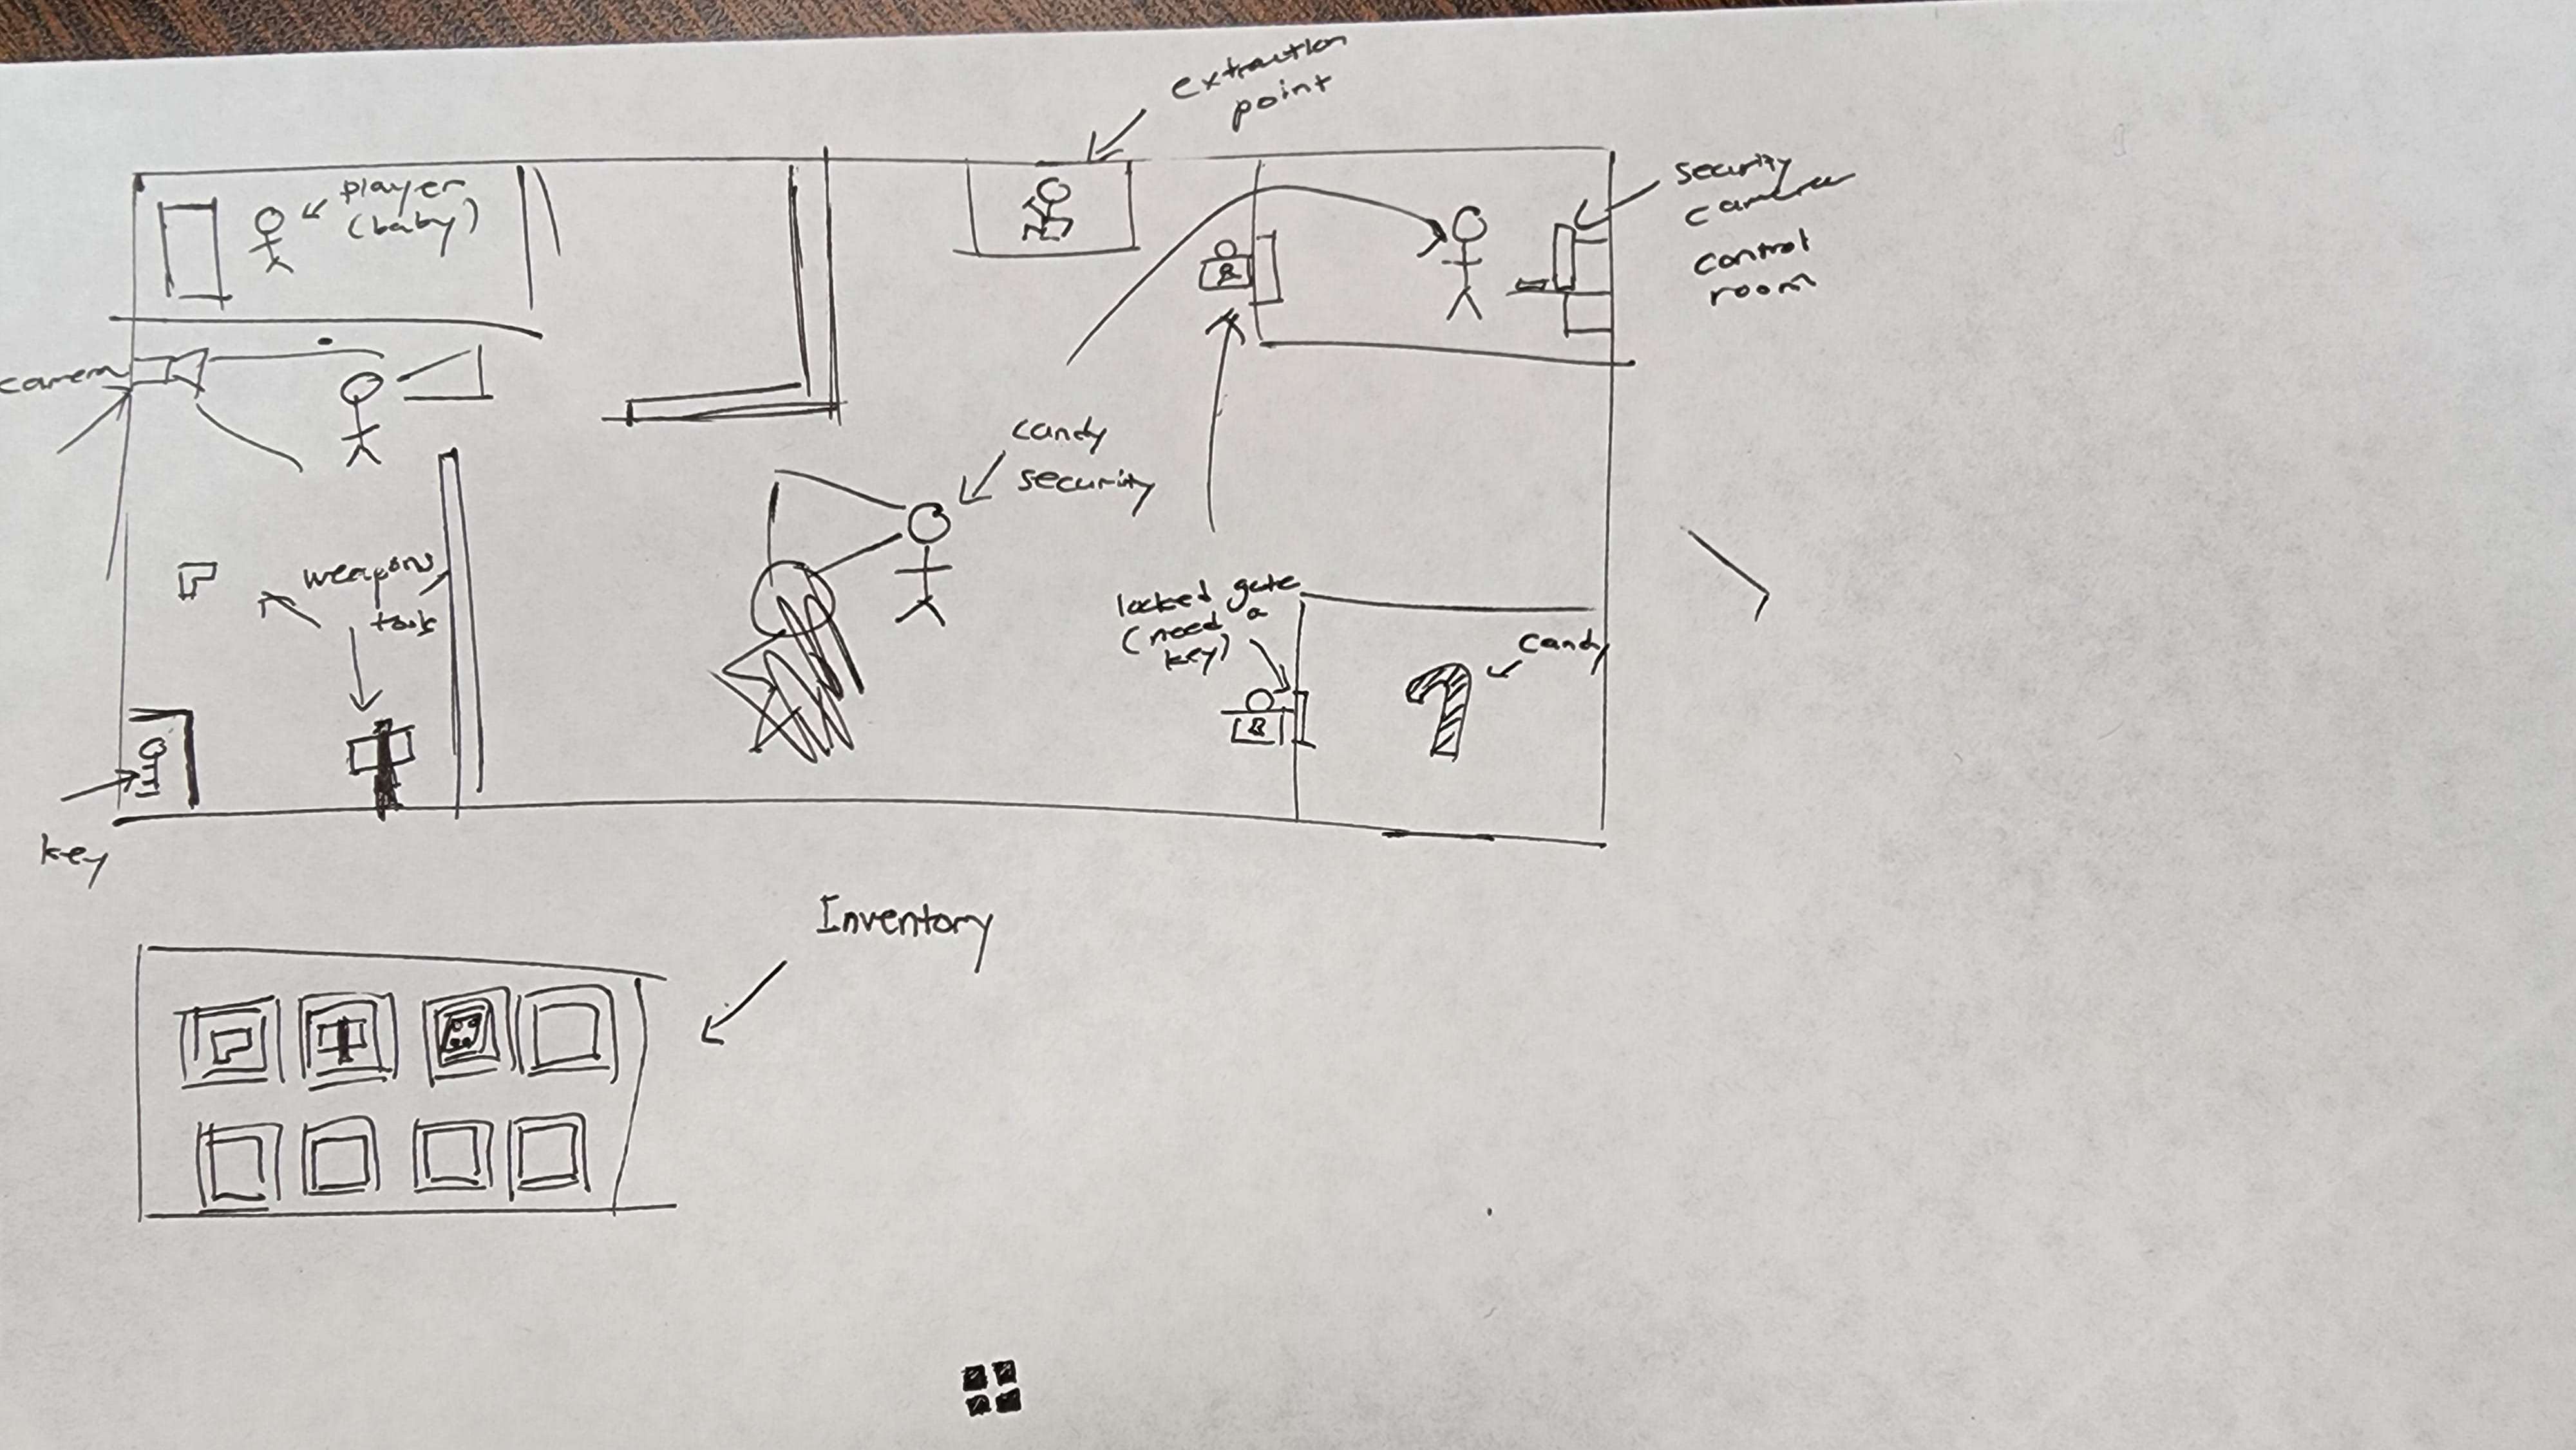 extraction
point
player
(baby)
security
camera
control
room
camera
candy
security
weapons
tools
locked gate
(need a
key)
candy
key
Inventory